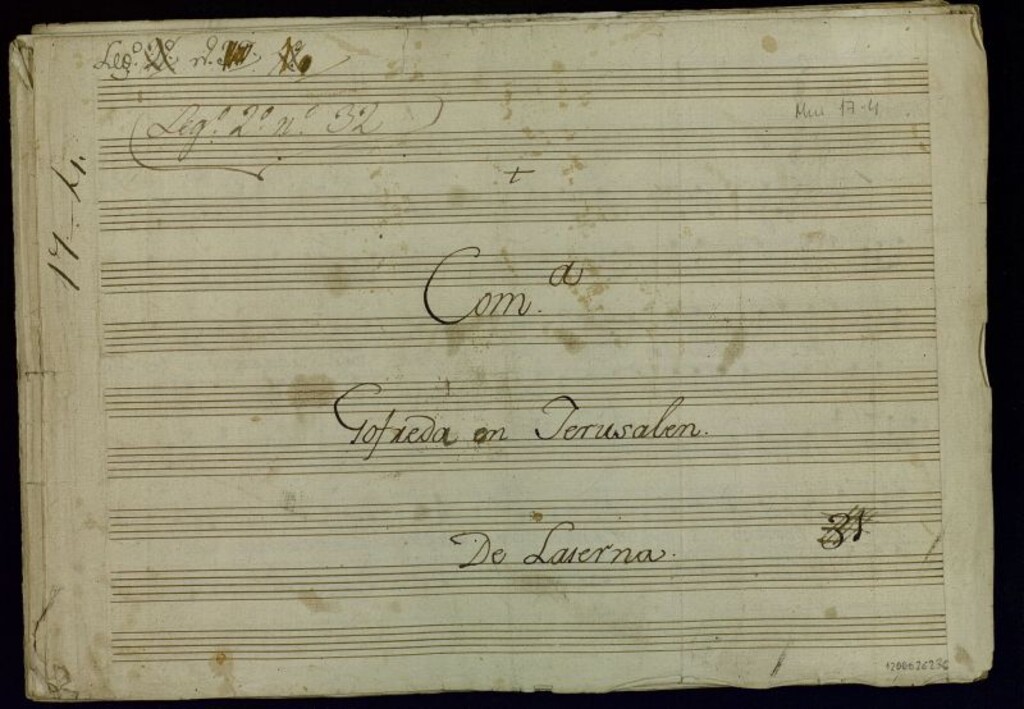 Leg.º
Leg.º 2.º n.º 32
Mus 17-4
17-4.
+
Com.a
Gofreda en Jerusalen.
De Laserna.
31
1200026236